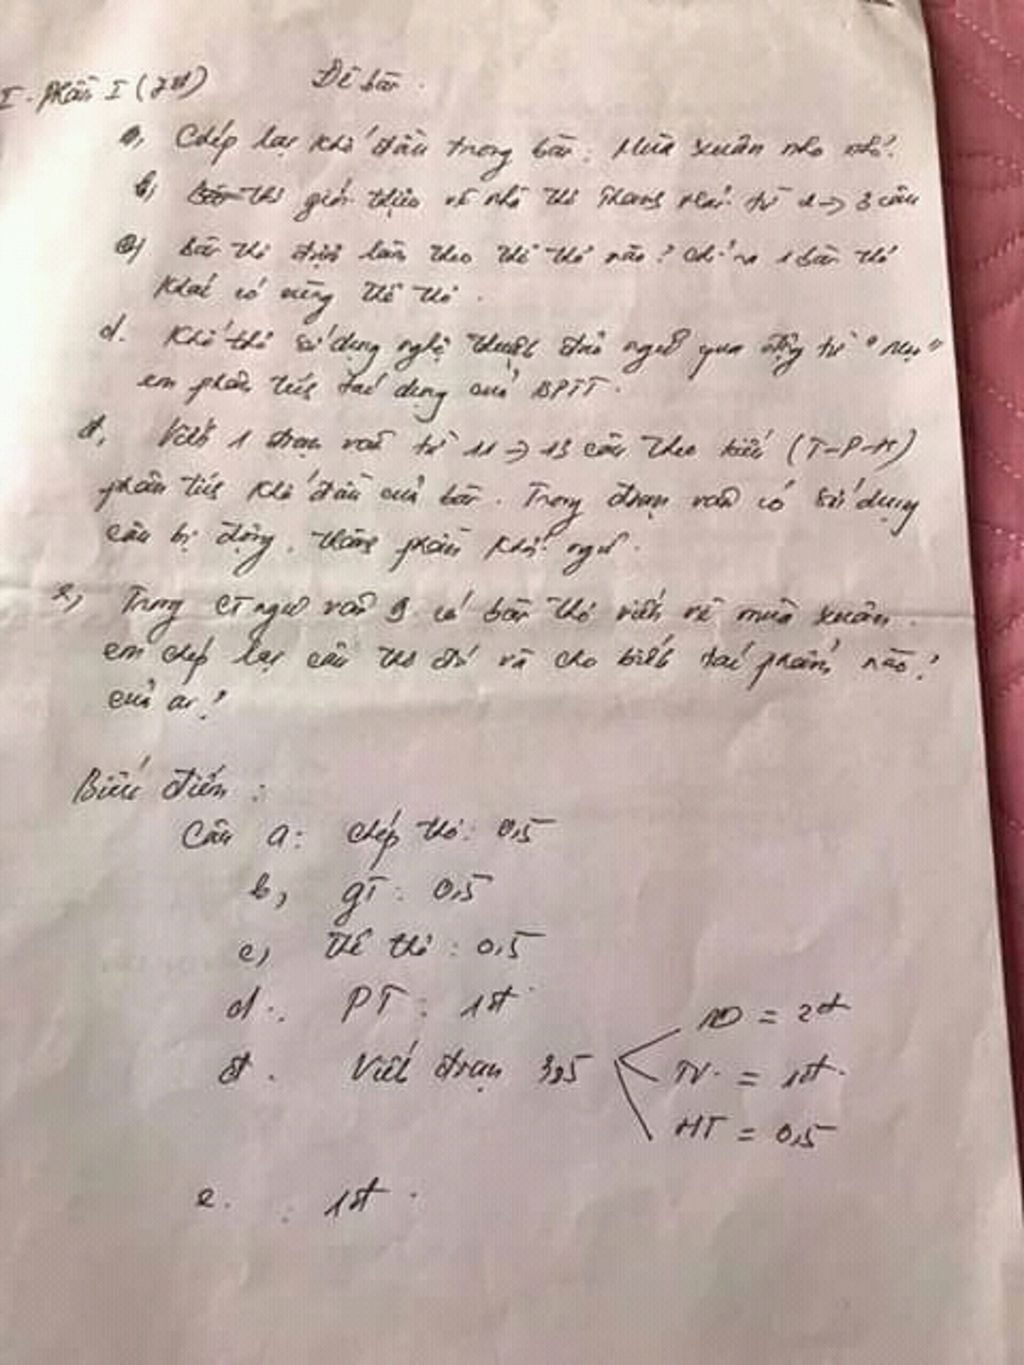 I - Phần I (7đ) Đề bài.
a, Chép lại khổ đầu trong bài: Mùa xuân nho nhỏ.
b, giới thiệu về nhà thơ Thanh Hải từ 2 -> 3 câu
c, bài thơ được làm theo thể thơ nào? chỉ ra 1 bài thơ
khác có cùng thể thơ.
d. Khổ thơ sử dụng nghệ thuật đảo ngữ qua động từ "Mọc"
em phân tích tác dụng của BPTT.
đ, Viết 1 đoạn văn từ 11 -> 13 câu theo kiểu (T-P-H)
phân tích khổ đầu của bài. Trong đoạn văn có sử dụng
câu bị động, thành phần khởi ngữ.
e, Trong CT ngữ văn 9 có bài thơ viết về mùa xuân.
em chép lại câu thơ đó và cho biết tác phẩm nào?
của ai?
Biểu điểm:
Câu a: chép thơ: 0,5
b, GT: 0,5
c, thể thơ: 0,5
d.. PT: 1đ
ND = 2đ
đ. Viết đoạn 3,5 TV. = 1đ.
HT = 0,5
e. : 1đ.